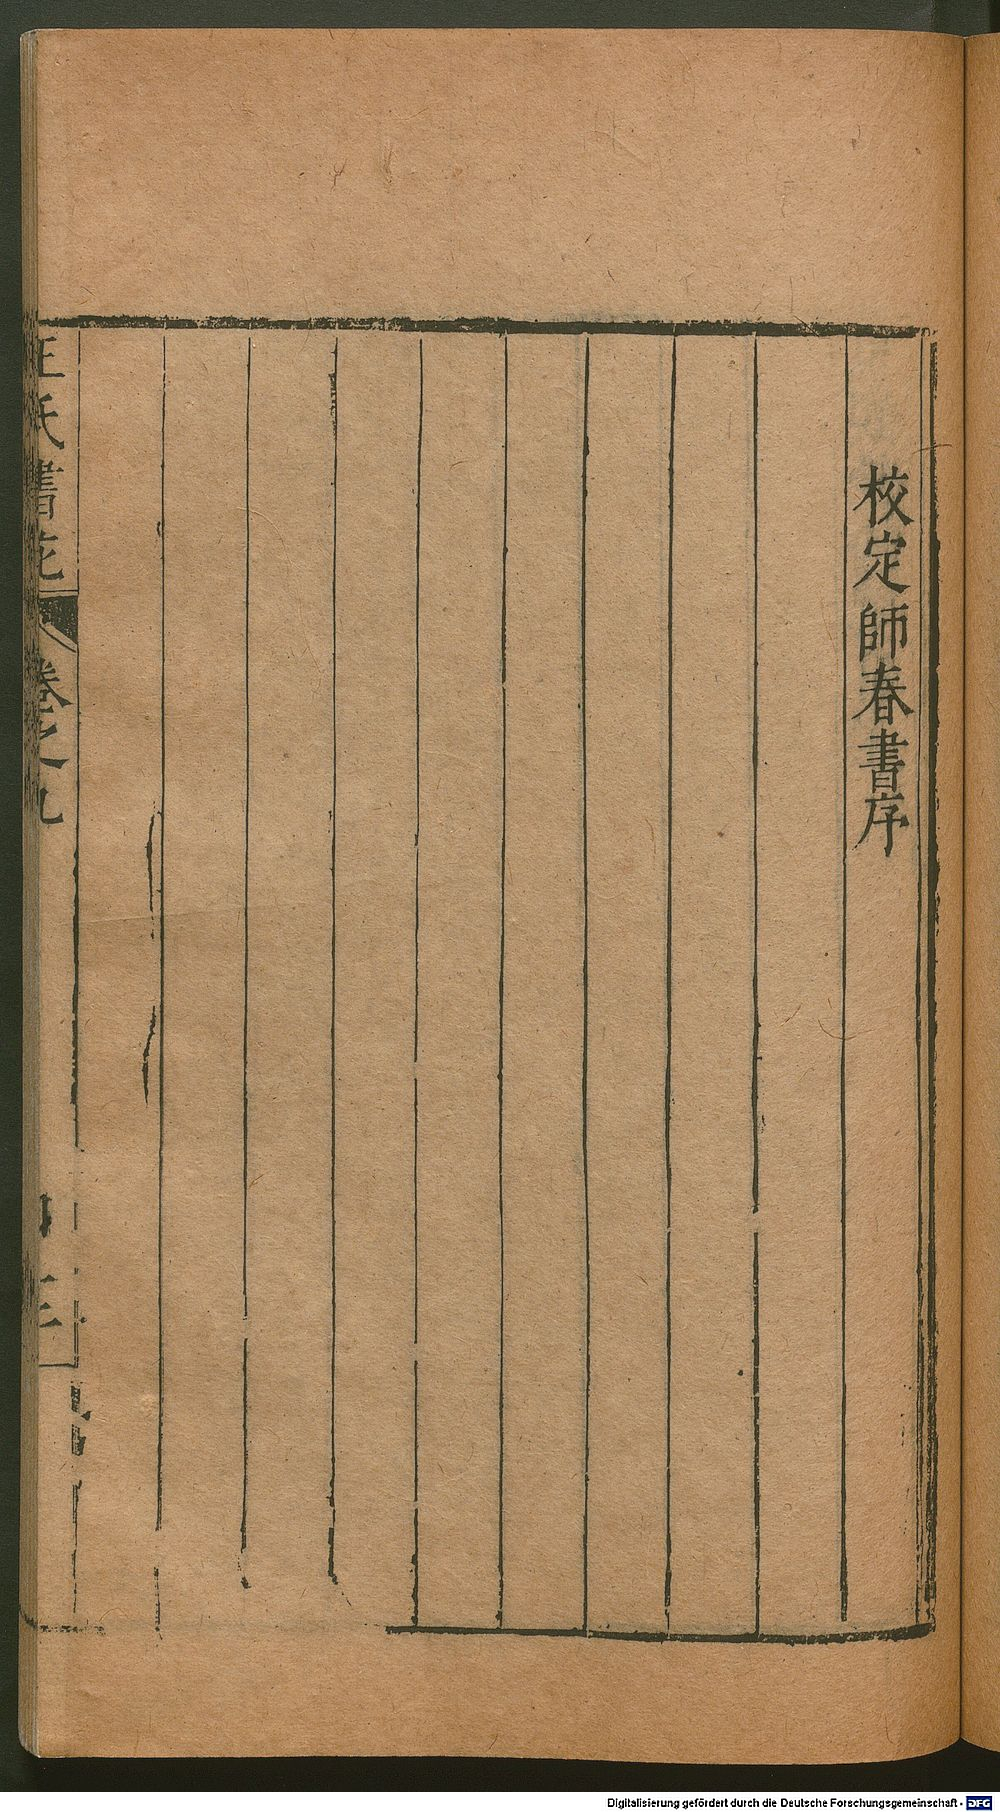 校定師春書序
王氏書苑
卷之九
Digitalisierung gefördert durch die Deutsche Forschungsgemeinschaft - DFG